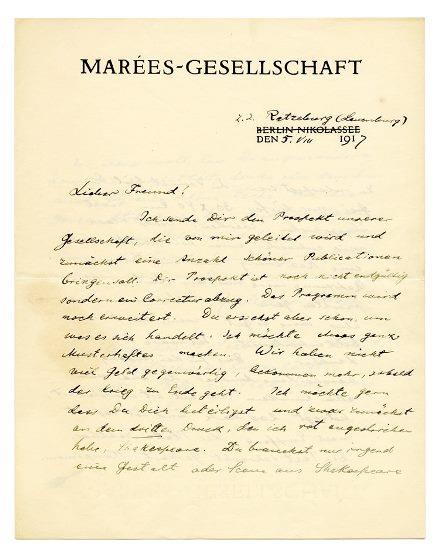 MARÉES-GESELLSCHAFT
z. Z. Ratzeburg (Lauenburg)
BERLIN NIKOLASSEE
DEN 5. VIII 1917
Lieber Freund!
Ich sende Dir den Prospekt unserer
Gesellschaft, die von mir geleitet wird und
zunächst eine Anzahl schöner Publicationen
bringen soll. Der Prospekt ist noch nicht endgültig
sondern ein Correcturabzug. Das Programm ward
noch erweitert. Du ersiehst aber schon, um
was es sich handelt. Ich möchte etwas ganz
Musterhaftes machen. Wir haben nicht
viel Geld gegenwärtig, bekommen mehr, sobald
der Krieg zu Ende geht. Ich möchte gern
dass Du Dich beteiligst und zwar zunächst
an dem dritten Druck, den ich rot angestrichen
habe, Shakespeare. Du brauchst nur irgend
eine Gestalt oder Scene aus Shakespeare
GESELLSCHAFT